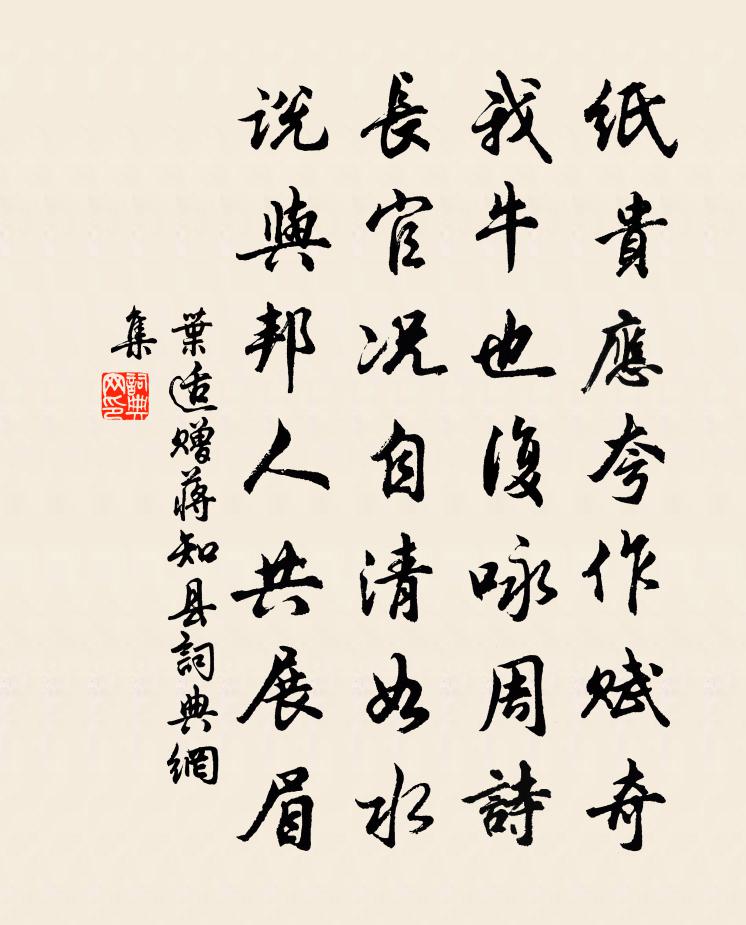 紙貴應夸作賦奇
我牛也復咏周詩
長官况自清如水
説與邦人共展眉
葉适贈蔣知县詞典網
集
詞典
网印